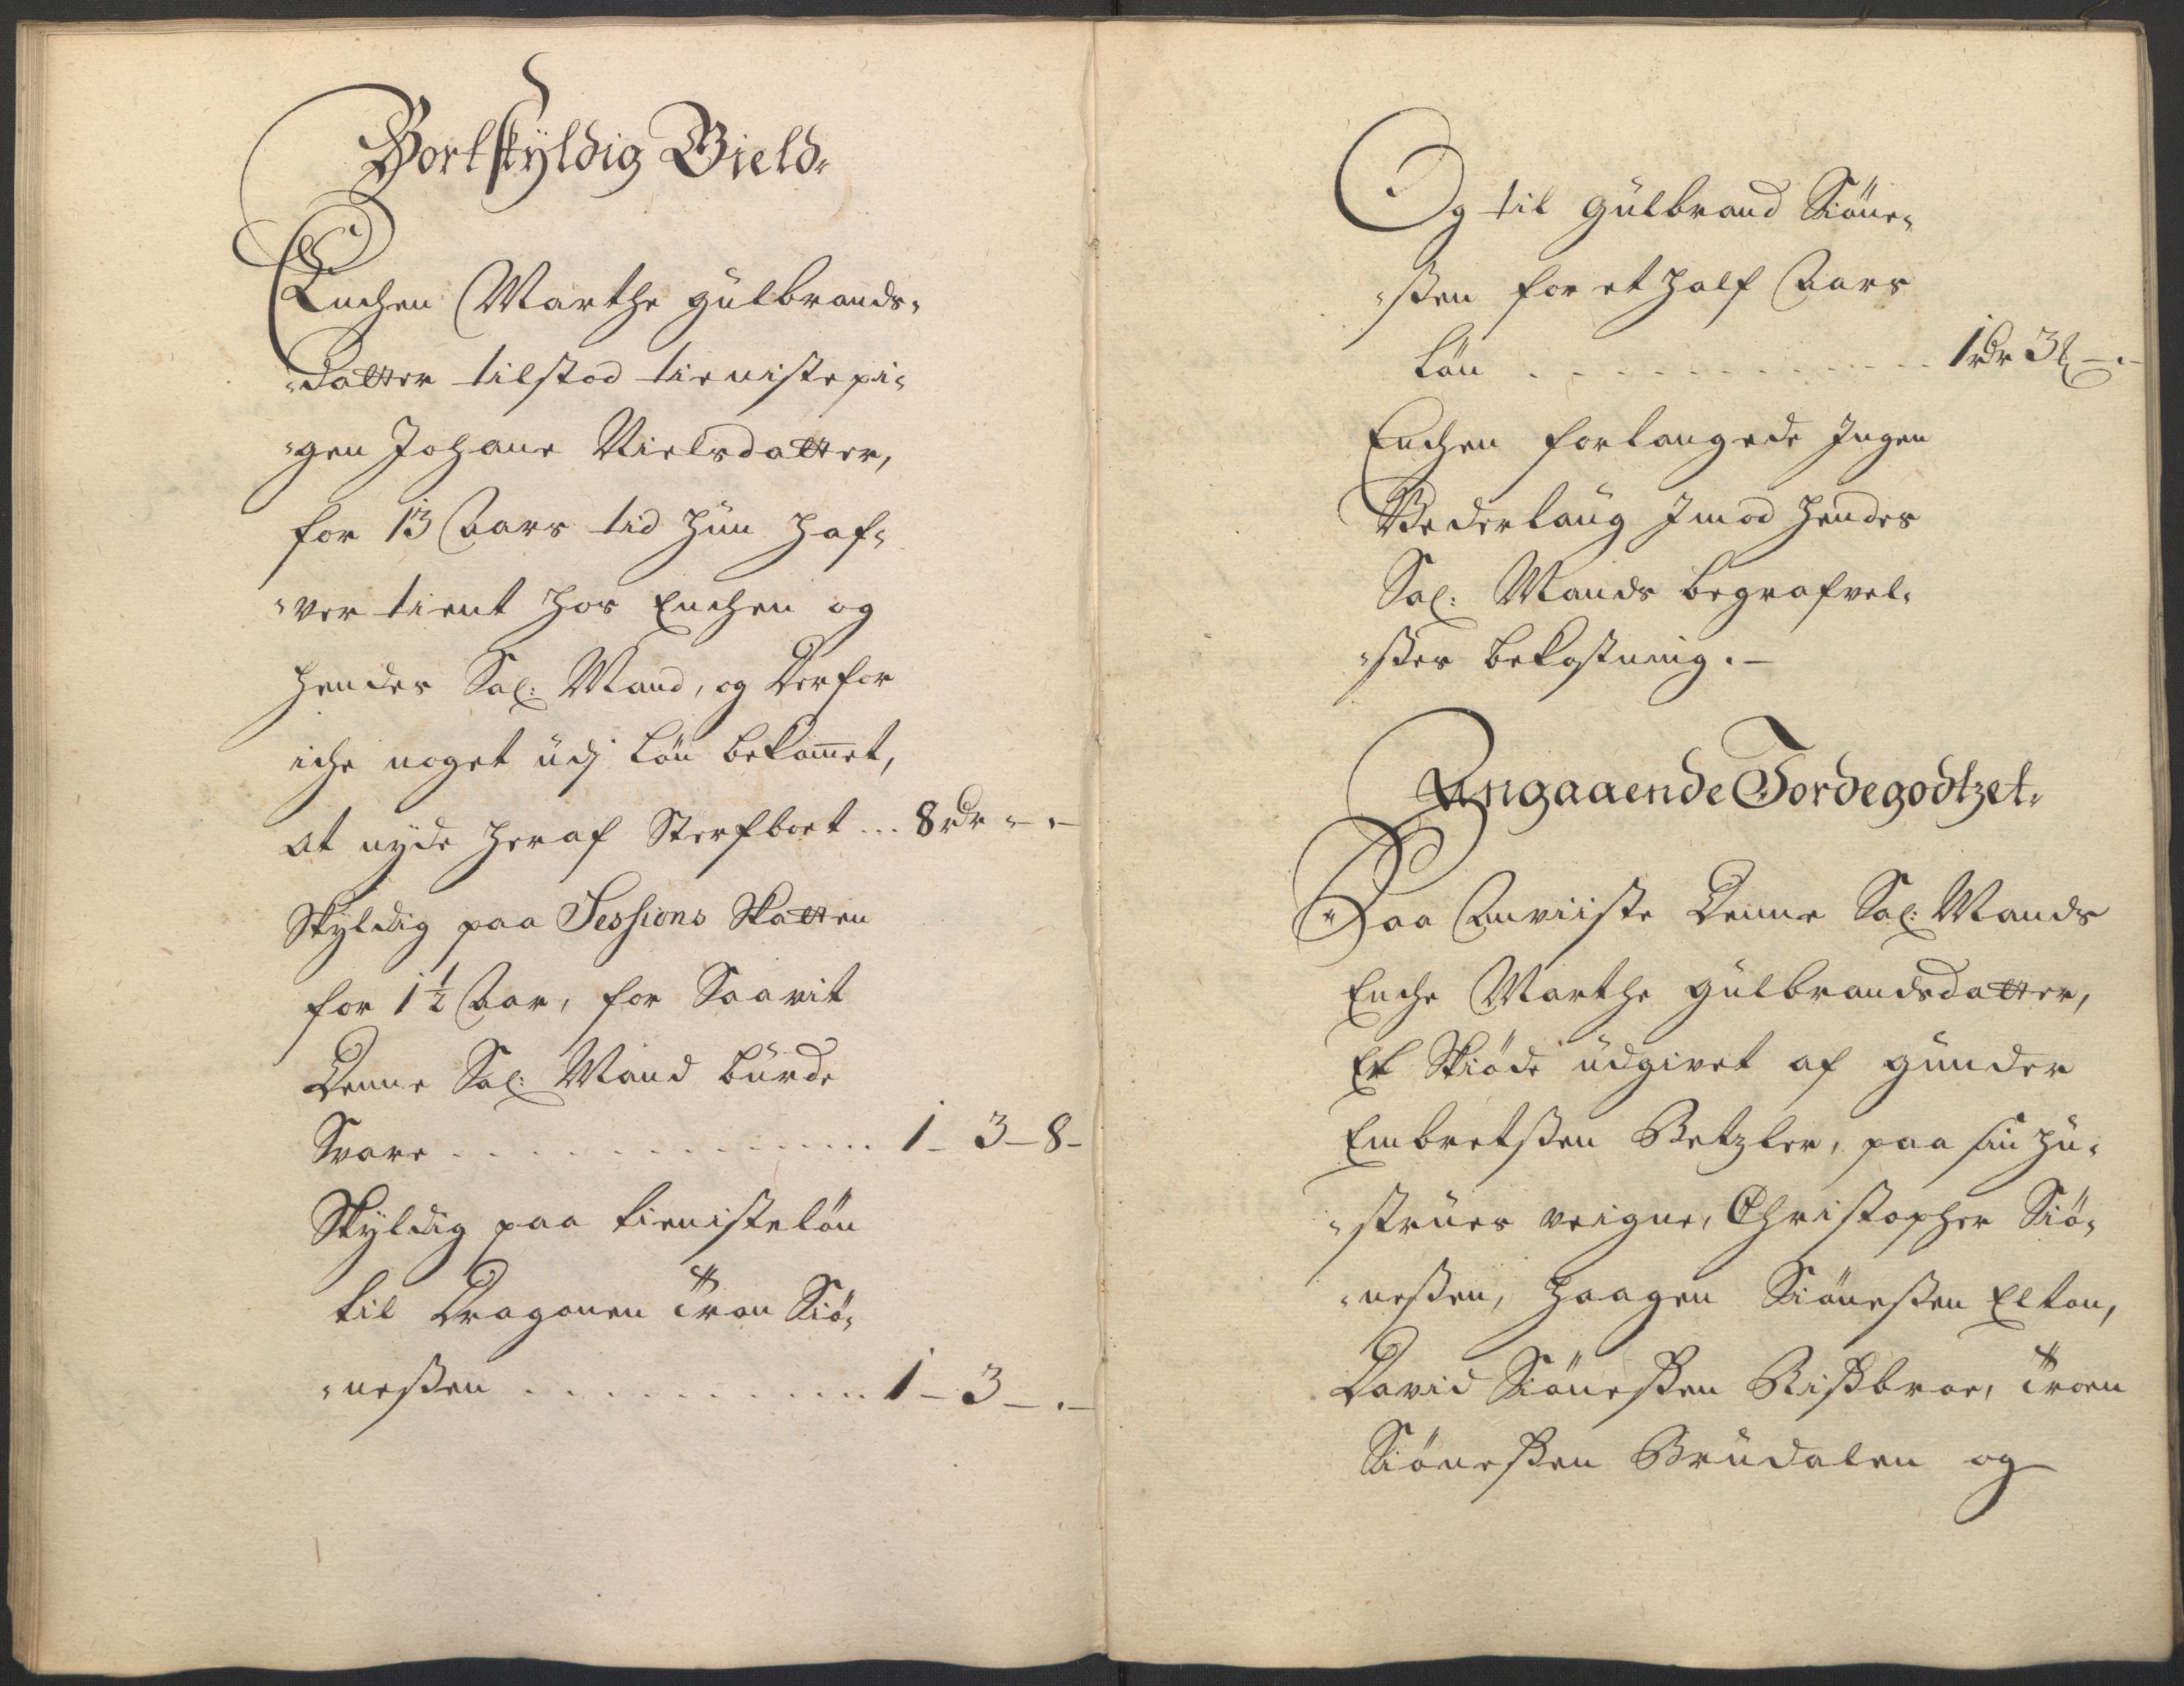 Bortskÿldig Gield
Enchen Marthe Gülbrands-
datter tilstod tienistepi-
gen Johane Nielsdatter,
for 13 Aars tid hün haf-
ver tient hos Enchen og
hendes Sal: Mand, og derfor
iche noget üdj Lön bekommet,
at nyde heraf Sterfboet ... 8 rdr - . -
Skÿldig paa Sessions Skatten
for 1 1/2 Aar, for Saavit
Denne Sal: Mand bürde
Svare ............... 1 - 3 - 8 -
Skÿldig paa tienistelön
til Dragonen Tron Siö-
neßen ............ 1 - 3 - . -
Og til Gülbrand Siöne-
ßen for et half Aars
Lön ............... 1 rdr 3 - . -
Enchen forlangede Ingen
Vederlaug Imod hendes
Sal: Mands begrafvel-
ßes bekostning. -
Angaaende Jordegodtzet
Saa Anviiste Denne Sal: Mands
Enche Marthe Gülbrandsdatter,
Et Skiöde üdgivet af Günder
Embretßen Betzler, paa sin Hü-
strües veigne, Christopher Siö-
neßen, Haagen Siöneßen Elton,
David Siöneßen Rißbroe, Troen
Siöneßen Brüdalen og